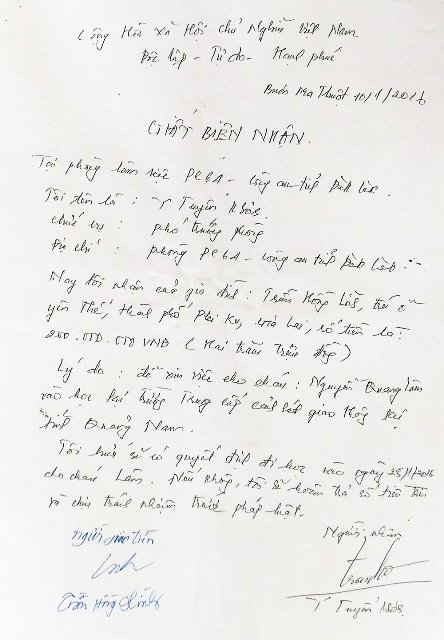 Cộng Hòa xã Hội chủ Nghĩa Việt Nam
Độc lập - Tự do - Hạnh phúc
Buôn Ma Thuột 10/1/2016
GIẤY BIÊN NHẬN.
Tại phòng làm việc PC81 - Công an tỉnh Đắk Lắk.
Tôi tên là : Y Tuyên
Chức vụ : phó trưởng phòng
Địa chỉ : phòng PC81 - Công an tỉnh Đắk Lắk
Nay tôi nhận của gia đình : Trần Hồng, trú ở
Yên Thế, thành phố Plei Ku, Gia Lai, số tiền là:
200.000.000 VNĐ (Hai trăm triệu đồng)
Lý do : để xin việc cho cháu : Nguyễn Quang Lâm
vào học tại trường Trung cấp cảnh sát giao thông tại
tỉnh Quảng Nam.
Tôi hứa sẽ có quyết định đi học vào ngày 25/1/2016
cho cháu Lâm. Nếu không, tôi sẽ hoàn trả số tiền trên
và chịu trách nhiệm trước pháp luật.
Người giao tiền
Người nhận
Trần Hồng
Y Tuyên